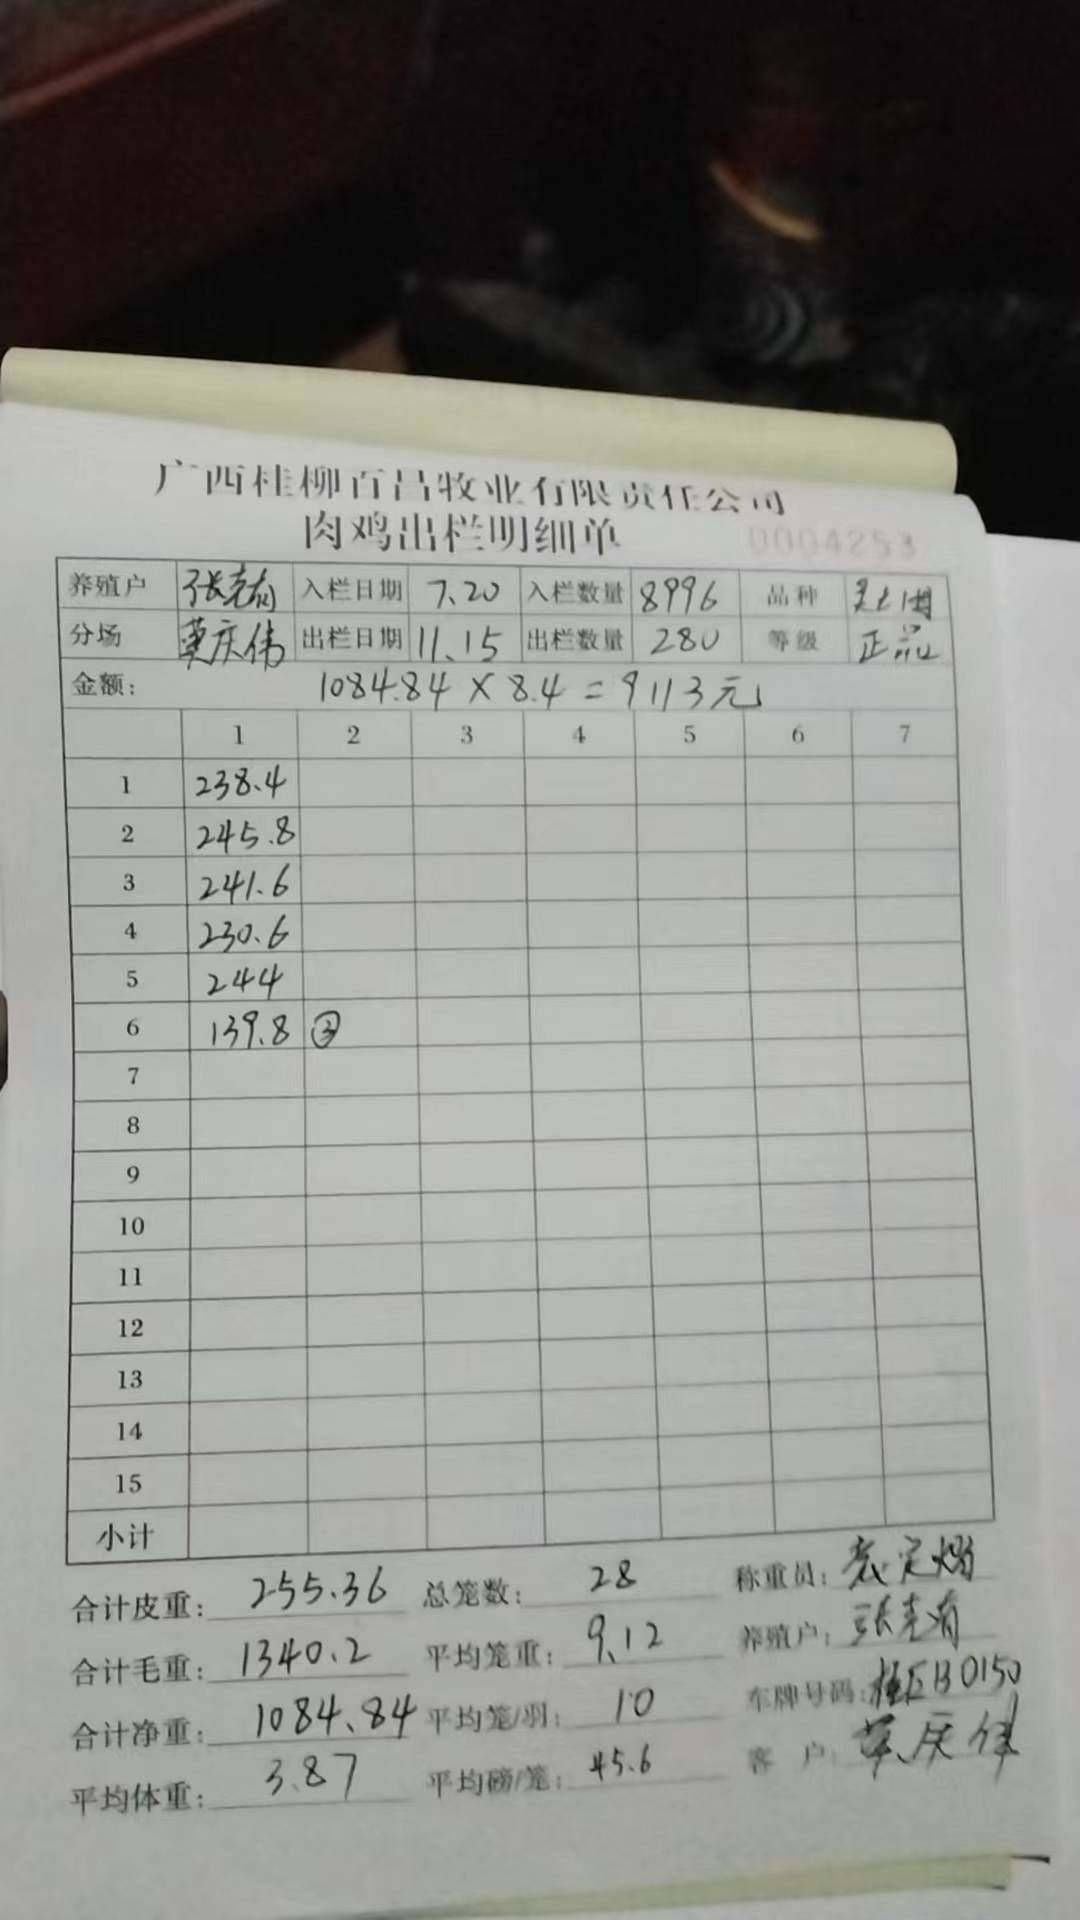 广西桂柳百昌牧业有限责任公司
肉鸡出栏明细单 0004253
养殖户 张克有 入栏日期 7.20 入栏数量 8996 品种
分场 覃庆伟 出栏日期 11.15 出栏数量 280 等级 正品
金额: 1084.84 × 8.4 = 9113元
1 2 3 4 5 6 7
1 238.4
2 245.8
3 241.6
4 230.6
5 244
6 139.8 ③
7
8
9
10
11
12
13
14
15
小计
合计皮重: 255.36 总笼数: 28 称重员:
合计毛重: 1340.2 平均笼重: 9.12 养殖户: 张克有
合计净重: 1084.84 平均笼/羽: 10 车牌号码: 桂B0150
平均体重: 3.87 平均磅/笼: 45.6 客户: 覃庆伟